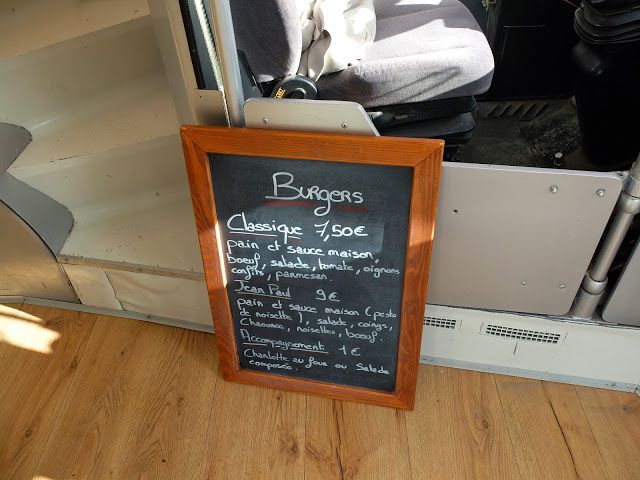 Burgers
Classique 7,50€
pain et sauce maison,
boeuf, salade, tomate, oignons
confits, parmesan.
Jean Paul 9€
pain et sauce maison (pesto
de noisette), salade, coings,
Chaource, noisettes, boeuf.
Accompagnement 1€
Charlotte au four ou Salade
composée.